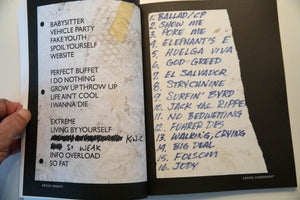 BABYSITTER
VEHICLE PARTY
FAKE YOUTH
SPOIL YOURSELF
WEBSITE
PERFECT BUFFET
I DO NOTHING
GROW UP THROW UP
LIFE AIN'T COOL
I WANNA DIE
EXTREME
LIVING BY YOURSELF
SO WEAK
INFO OVERLOAD
SO FAT
1. BALLAD/CP
2. SHOW ME
3. POKE ME
4. ELEPHANT'S E
5. HUELGA VIVA
6. GOD-GREED
7. EL SALVADOR
8. STRYCHNINE
9. SURFIN' BYRD
10. JACK THE RIPPE
11. NO BEDWETTING
12. FUHRER DES
13. WALKING, CRYING
14. BIG DEAL
15. FOLSOM
16. JODY
CAPITOL PUNISHMENT